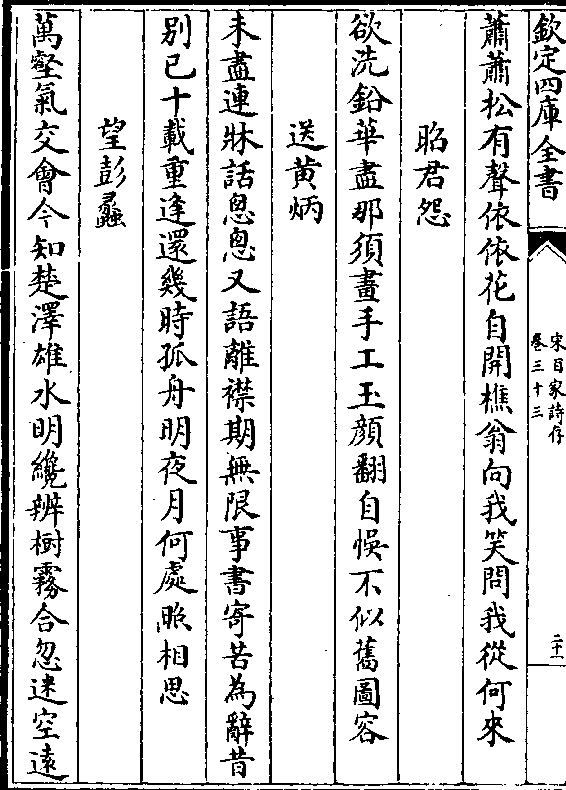 欽定四庫全書
宋百家詩存
卷三十三
二十一
蕭蕭松有聲依依花自開樵翁向我笑問我從何來
昭君怨
欲洗鉛華盡那須畫手工玉顔翻自悞不似舊圖容
送黄炳
未盡連牀話怱怱又語離襟期無限事書寄苦為辭昔
别已十載重逢還幾時孤舟明夜月何處照相思
望彭蠡
萬壑氣交會今知楚澤雄水明纔辨樹霧合忽迷空逺